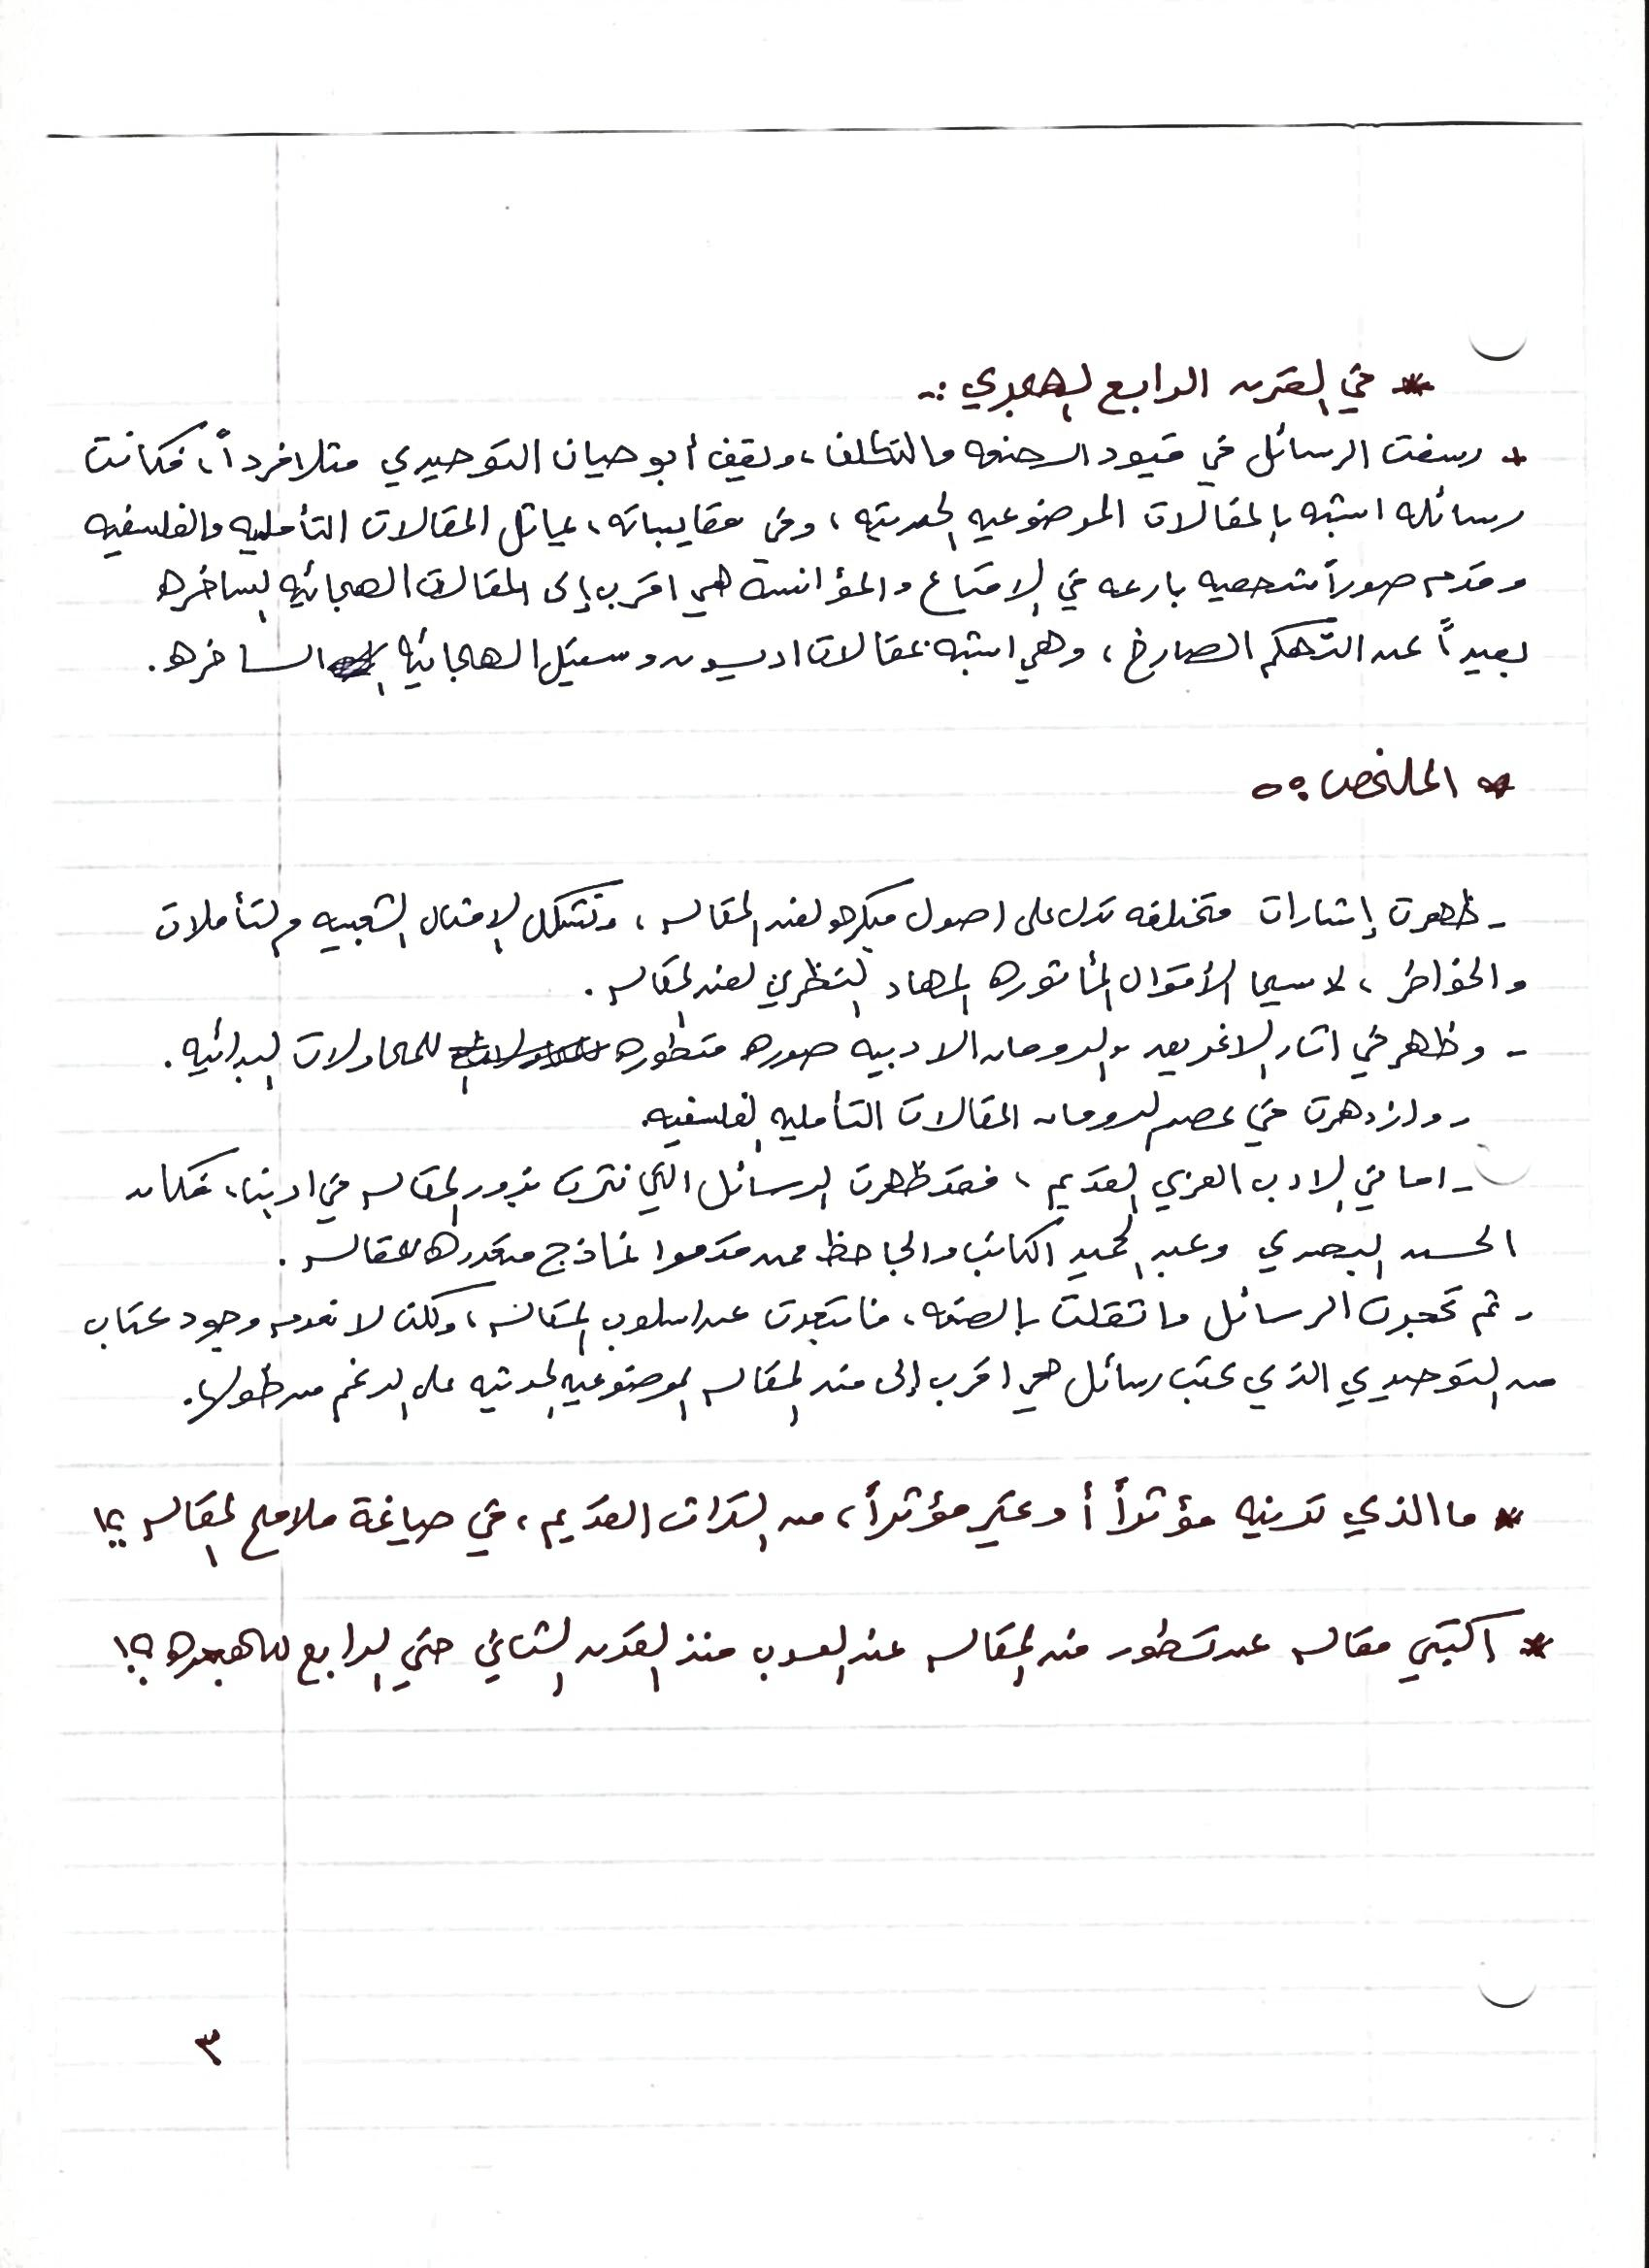 * في القرن الرابع الهجري :-
+ رسفت الرسائل في قيود الصنعه والتكلف، ويقف أبو حيان التوحيدي مثلا فرداً، فكانت
رسائله اشبه بالمقالات الموضوعيه الحديثه، وفي مقابساته، يماثل المقالات التأمليه والفلسفيه
وقدم صوراً شخصيه بارعه في الامتاع والمؤانسة هي اقرب إلى المقالات الهجائيه الساخره
بعيداً عن التهكم الصارخ، وهي اشبه بمقالات اديسون وستيل الهجائيه الساخره.
* الملخص :-
- ظهرت إشارات مختلفه تدل على اصول مبكره لفن المقاله، وتشكل الامثال الشعبيه والتأملات
والخواطر، لا سيما الأقوال المأثوره المهاد النظري لفن المقاله.
- وظهر في اثار الاغريق والرومان الادبيه صوره متطوره للمحاولات البدائيه.
- وازدهرت في عصر الرومان المقالات التأمليه الفلسفيه.
- اما في الادب العربي القديم، فقد ظهرت الرسائل التي نثرت بذور المقاله في ادبنا، فكان
الحسن البصري وعبد الحميد الكاتب والجاحظ ممن قدموا نماذج متعدده للمقاله.
- ثم تحجرت الرسائل واثقلت بالصنعه، فابتعدت عن اسلوب المقاله، ولكن لا نعدم وجود كتاب
من التوحيدي الذي كتب رسائل هي اقرب إلى فن المقاله الموضوعيه الحديثه على الرغم من طولها.
* ما الذي ترينه مؤثراً أو غير مؤثراً، من التراث القديم، في صياغة ملامح المقاله ؟!
* اكتبي مقاله عن تطور فن المقاله عند العرب منذ القرن الثاني حتي الرابع للهجره ؟!
٣